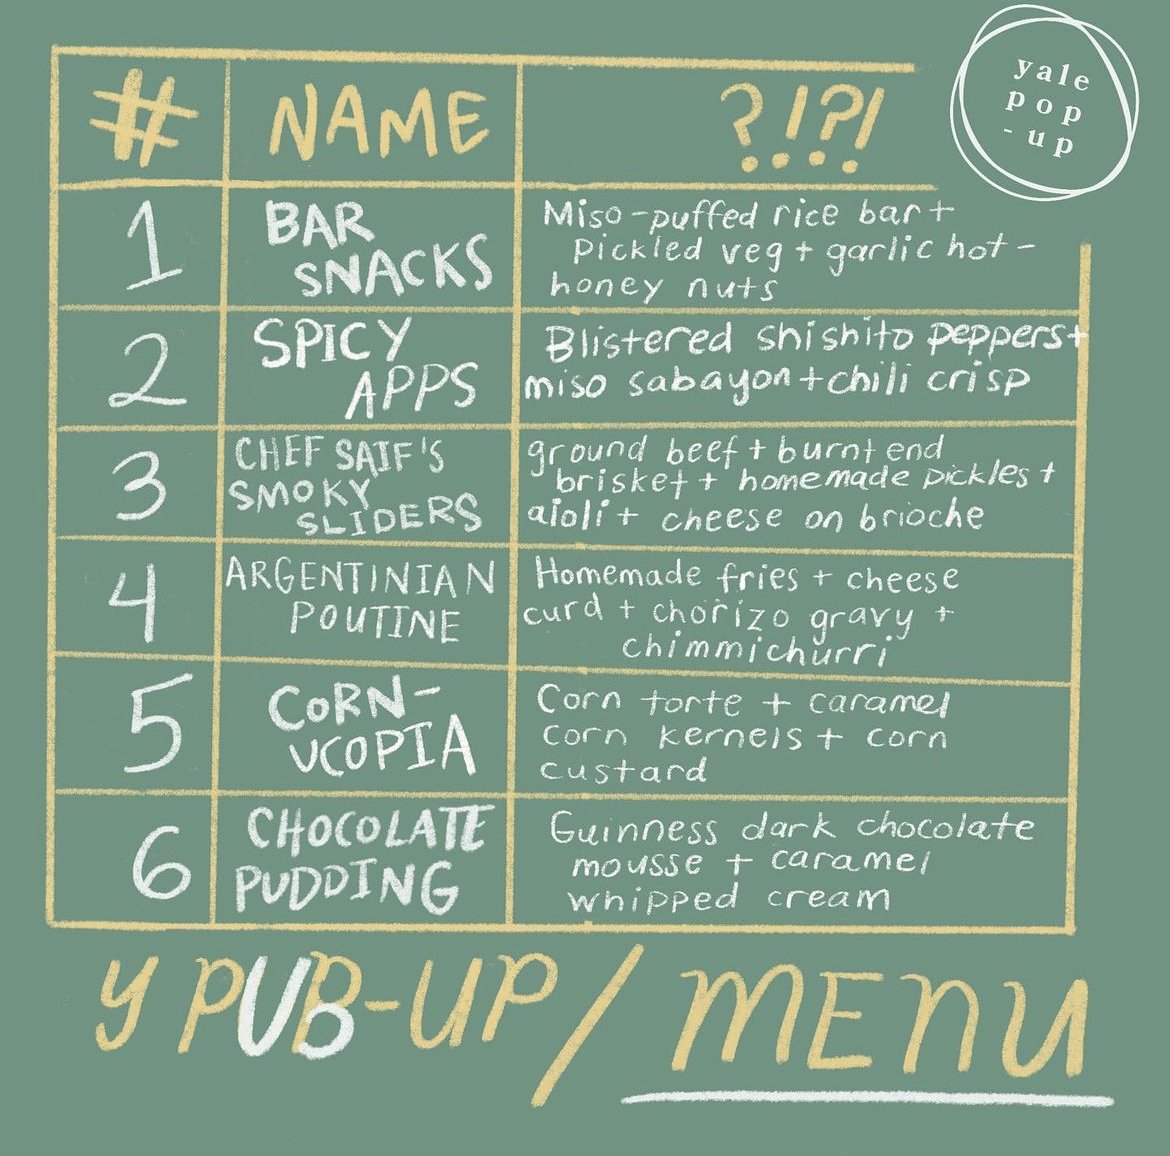 yale
pop
-up
# NAME ?!?!
1
BAR
SNACKS
Miso-puffed rice bar+
pickled veg + garlic hot-
honey nuts
2
SPICY
APPS
Blistered shishito peppers+
miso sabayon + chili crisp
3
CHEF SAIF'S
SMOKY
SLIDERS
ground beef + burnt end
brisket + homemade pickles +
aioli + cheese on brioche
4
ARGENTINIAN
POUTINE
Homemade fries + cheese
curd + chorizo gravy +
chimmichurri
5
CORN-
UCOPIA
Corn torte + caramel
corn kernels + corn
custard
6
CHOCOLATE
PUDDING
Guinness dark chocolate
mousse + caramel
whipped cream
Y PUB-UP/MENU